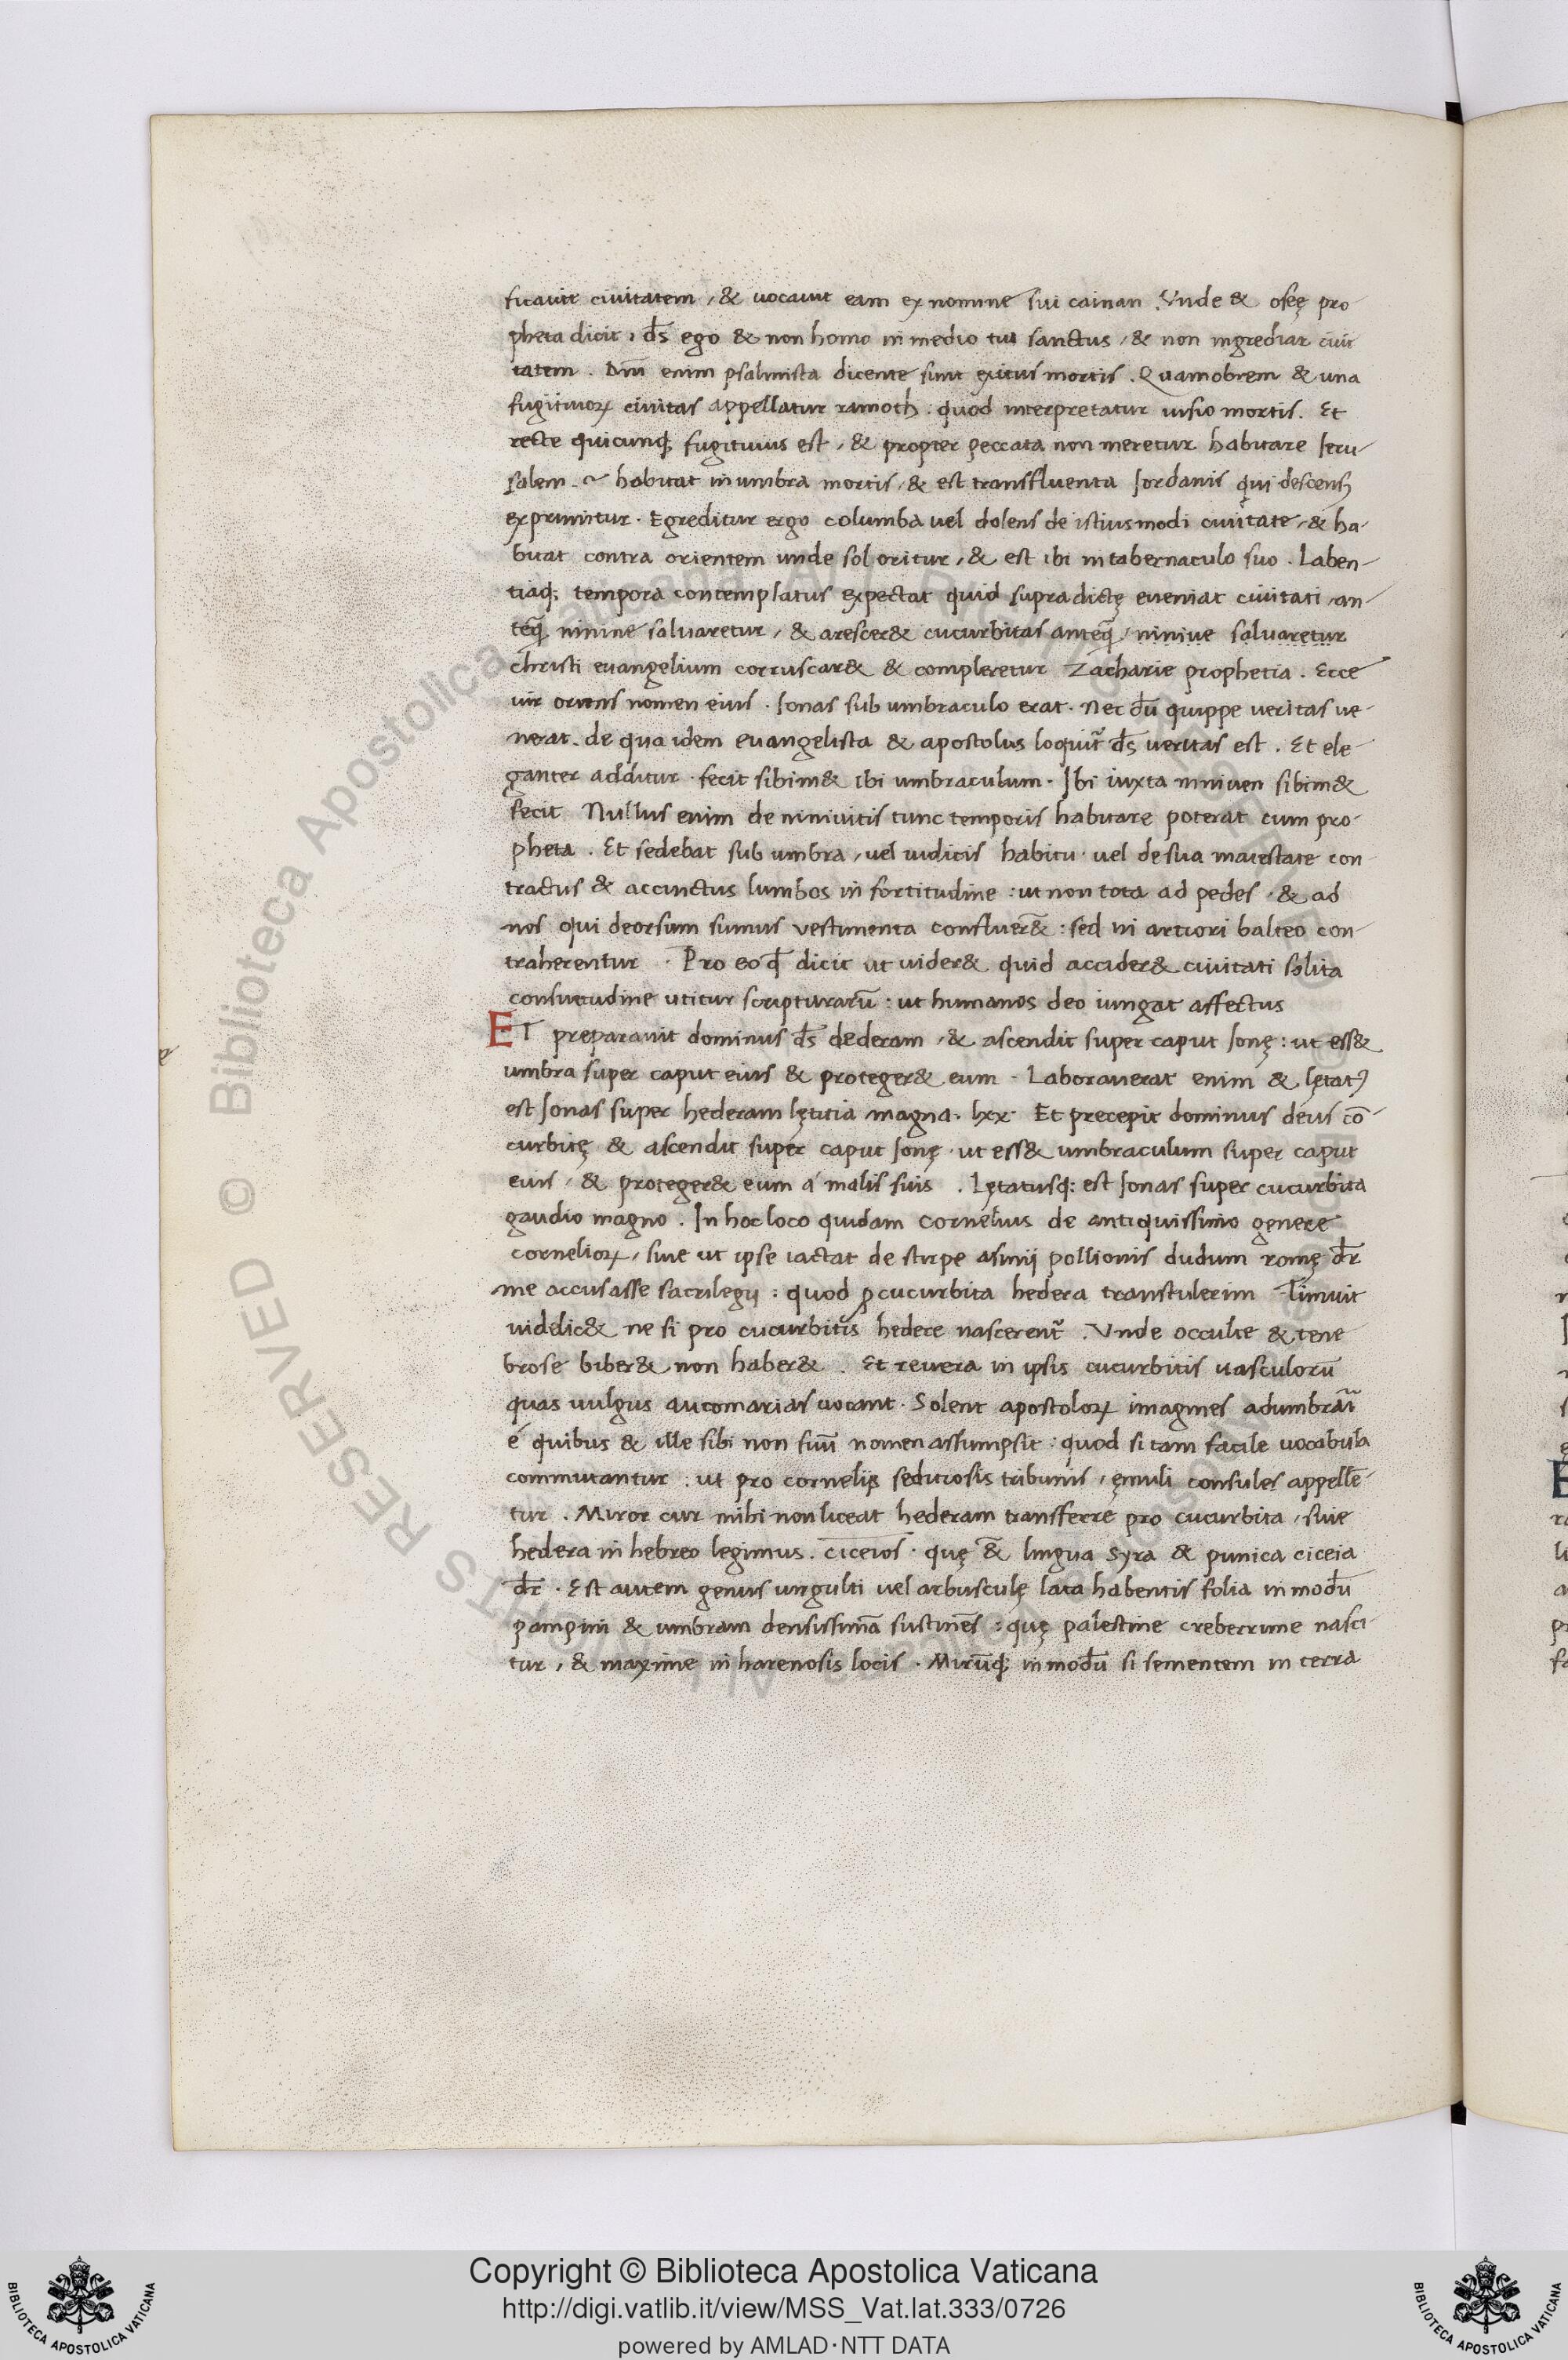 ficauit ciuitatem, & uocauit eam ex nomine sui cainan. Vnde & oseę pro-
pheta dicit, d̄s ego & non homo in medio tui sanctus, & non ingrediar ciui
tatem. Dnī enim psalmista dicente sunt exitus mortis. Quamobrem & una
fugitiuoꝝ ciuitas appellatur ramoth: quod interpretatur uisio mortis. Et
recte quicunq; fugitiuus est, & propter peccata non meretur habitare Ieru-
salem. habitat in umbra mortis, & est transfluenta Iordanis qui descensꝫ
exprimitur. Egreditur ergo columba uel dolens de istiusmodi ciuitate, & ha-
bitat contra orientem unde sol oritur, & est ibi in tabernaculo suo. Laben-
tiaq; tempora contemplatus expectat quid supradictę eueniat ciuitati, an-
teq̄ niniue saluaretur, & arescer& cucurbitas anteq̄, niniue saluaretur
christi euangelium corruscar& & compleretur Zacharie prophetia. Ecce
uir oriens nomen eius. Ionas sub umbraculo erat. Nec dū quippe ueritas ue-
nerat. de qua idem euangelista & apostolus loquit̄ d̄s ueritas est. Et ele-
ganter additur. fecit sibim& ibi umbraculum. Ibi iuxta niniuen sibim&
fecit Nullus enim de niniuitis tunc temporis habitare poterat cum pro-
pheta. Et sedebat sub umbra, uel iudicis habitu. uel de sua maiestate con-
tractus & accinctus lumbos in fortitudine: ut non tota ad pedes, & ad
nos qui deorsum sumus vestimenta confluer&̄: sed in artiori balteo con-
traherentur. Pro eo q̄ dicit ut uider& quid accider& ciuitati solita
consuetudine utitur scripturarū: ut humanos deo iungat affectus
ET preparauit dominus d̄s dederam, & ascendit super caput Ionę: ut ess&
umbra super caput eius & proteger& eum. Laborauerat enim & lętatꝰ
est Ionas super hederam lętitia magna. lxx. Et precepit dominus deus cō-
curbitę & ascendit super caput Ionę. ut ess& umbraculum super caput
eius, & proteger& eum a malis suis. Lętatusq: est Ionas super cucurbita
gaudio magno. In hoc loco quidam cornelius de antiquissimo genere
cornelioꝝ, siue ut ipse iactat de stirpe asinij pollionis dudum romę dr̄
me accusasse sacrilegij: quod ꝓ cucurbita hedera transtulerim Timuit
uidelic& ne si pro cucurbitis hedere nascerent̄. Vnde occulte & tene
brose biber& non haber&. Et reuera in ipsis cucurbitis uasculorū
quas uulgus aucomarias uocant. Solent apostoloꝝ imagines adumbrārī
e quibus & ille sibi non suū nomen assumpsit: quod si tam facile uocabula
commutantur: ut pro cornelijs seditiosis tribunis, ęmuli consules appellē-
tur. Miror cur mihi non liceat hederam transferre pro cucurbita, siue
hedera in hebreo legimus. ciceios. quę &̄ lingua Syra & punica ciceia
dr̄. Est autem genus uirgulti uel arbusculę lata habentis folia in modū
pampini & umbram densissimā sustinēs: quę palestine creberrime nasci-
tur, & maxime in harenosis locis. Mirūq; inmodū si sementem in terra
Copyright © Biblioteca Apostolica Vaticana
http://digi.vatlib.it/view/MSS_Vat.lat.333/0726
powered by AMLAD·NTT DATA